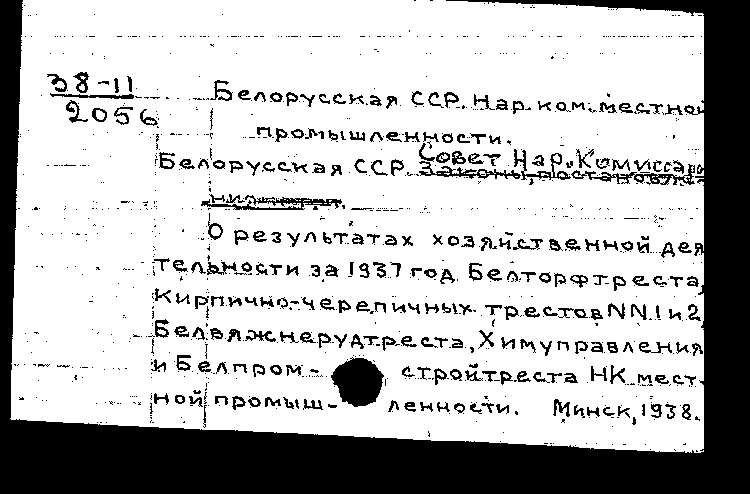 38-11
2056
Белорусская ССР. Нар. ком. местной
промышленности.
Совет Нар. Комиссаров
Белорусская ССР. Законы, постановле
ния
О результатах хозяйственной дея
тельности за 1937 год Белторфтреста,
кирпично-черепичных трестов NN 1 и 2,
Белвяжнерудтреста, Химуправления
и Белпром- стройтреста НК мест-
ной промыш- ленности. Минск, 1938.